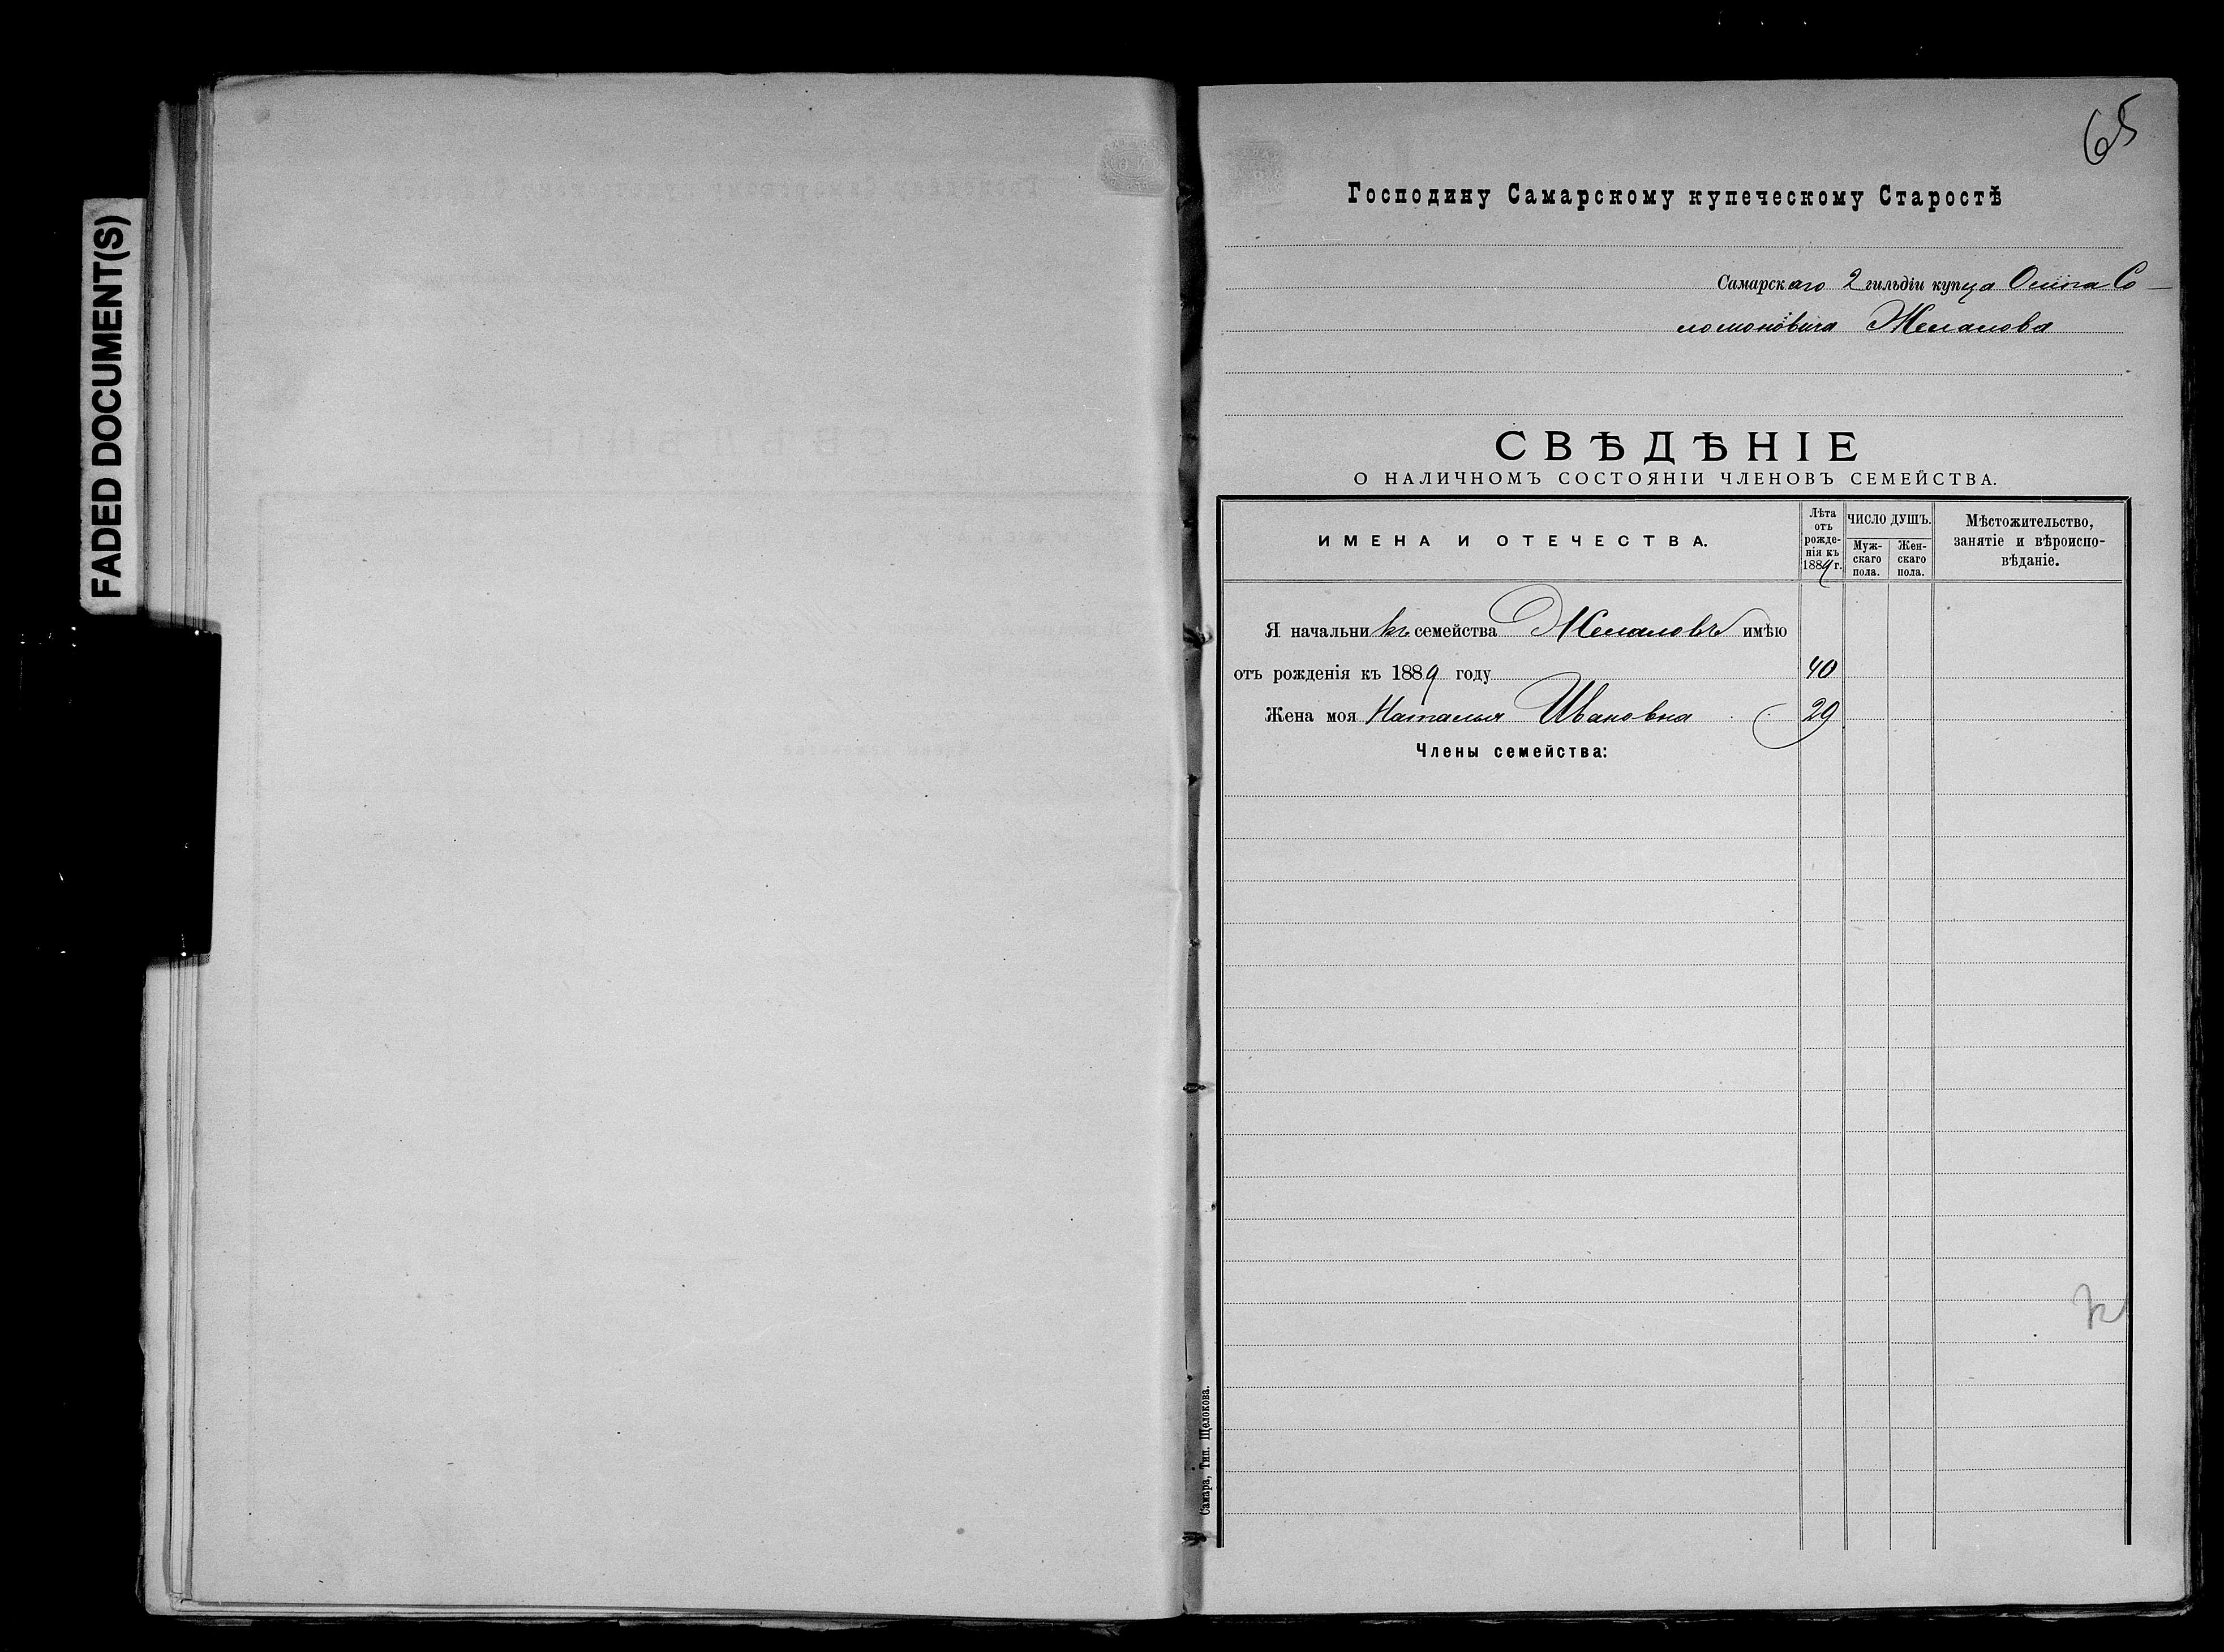 FADED DOCUMENT(S)
65
Господину Самарскому купеческому Старостѣ
Самарскаго 2 гильдіи купца Осипа Со-
ломоновича Желалова
СВѢДѢНІЕ
О НАЛИЧНОМЪ СОСТОЯНІИ ЧЛЕНОВЪ СЕМЕЙСТВА.
ИМЕНА И ОТЕЧЕСТВА.
Лѣта
отъ
рожде-
нія къ
1889 г.
ЧИСЛО ДУШЪ.
Муж-
скаго
пола.
Жен-
скаго
пола.
Мѣстожительство,
занятіе и вѣроиспо-
вѣданіе.
Я начальникъ семейства Желаловъ имѣю
отъ рожденія къ 1889 году 40
Жена моя Наталья Ивановна 29
Члены семейства:
Самара, Тип. Щелокова.